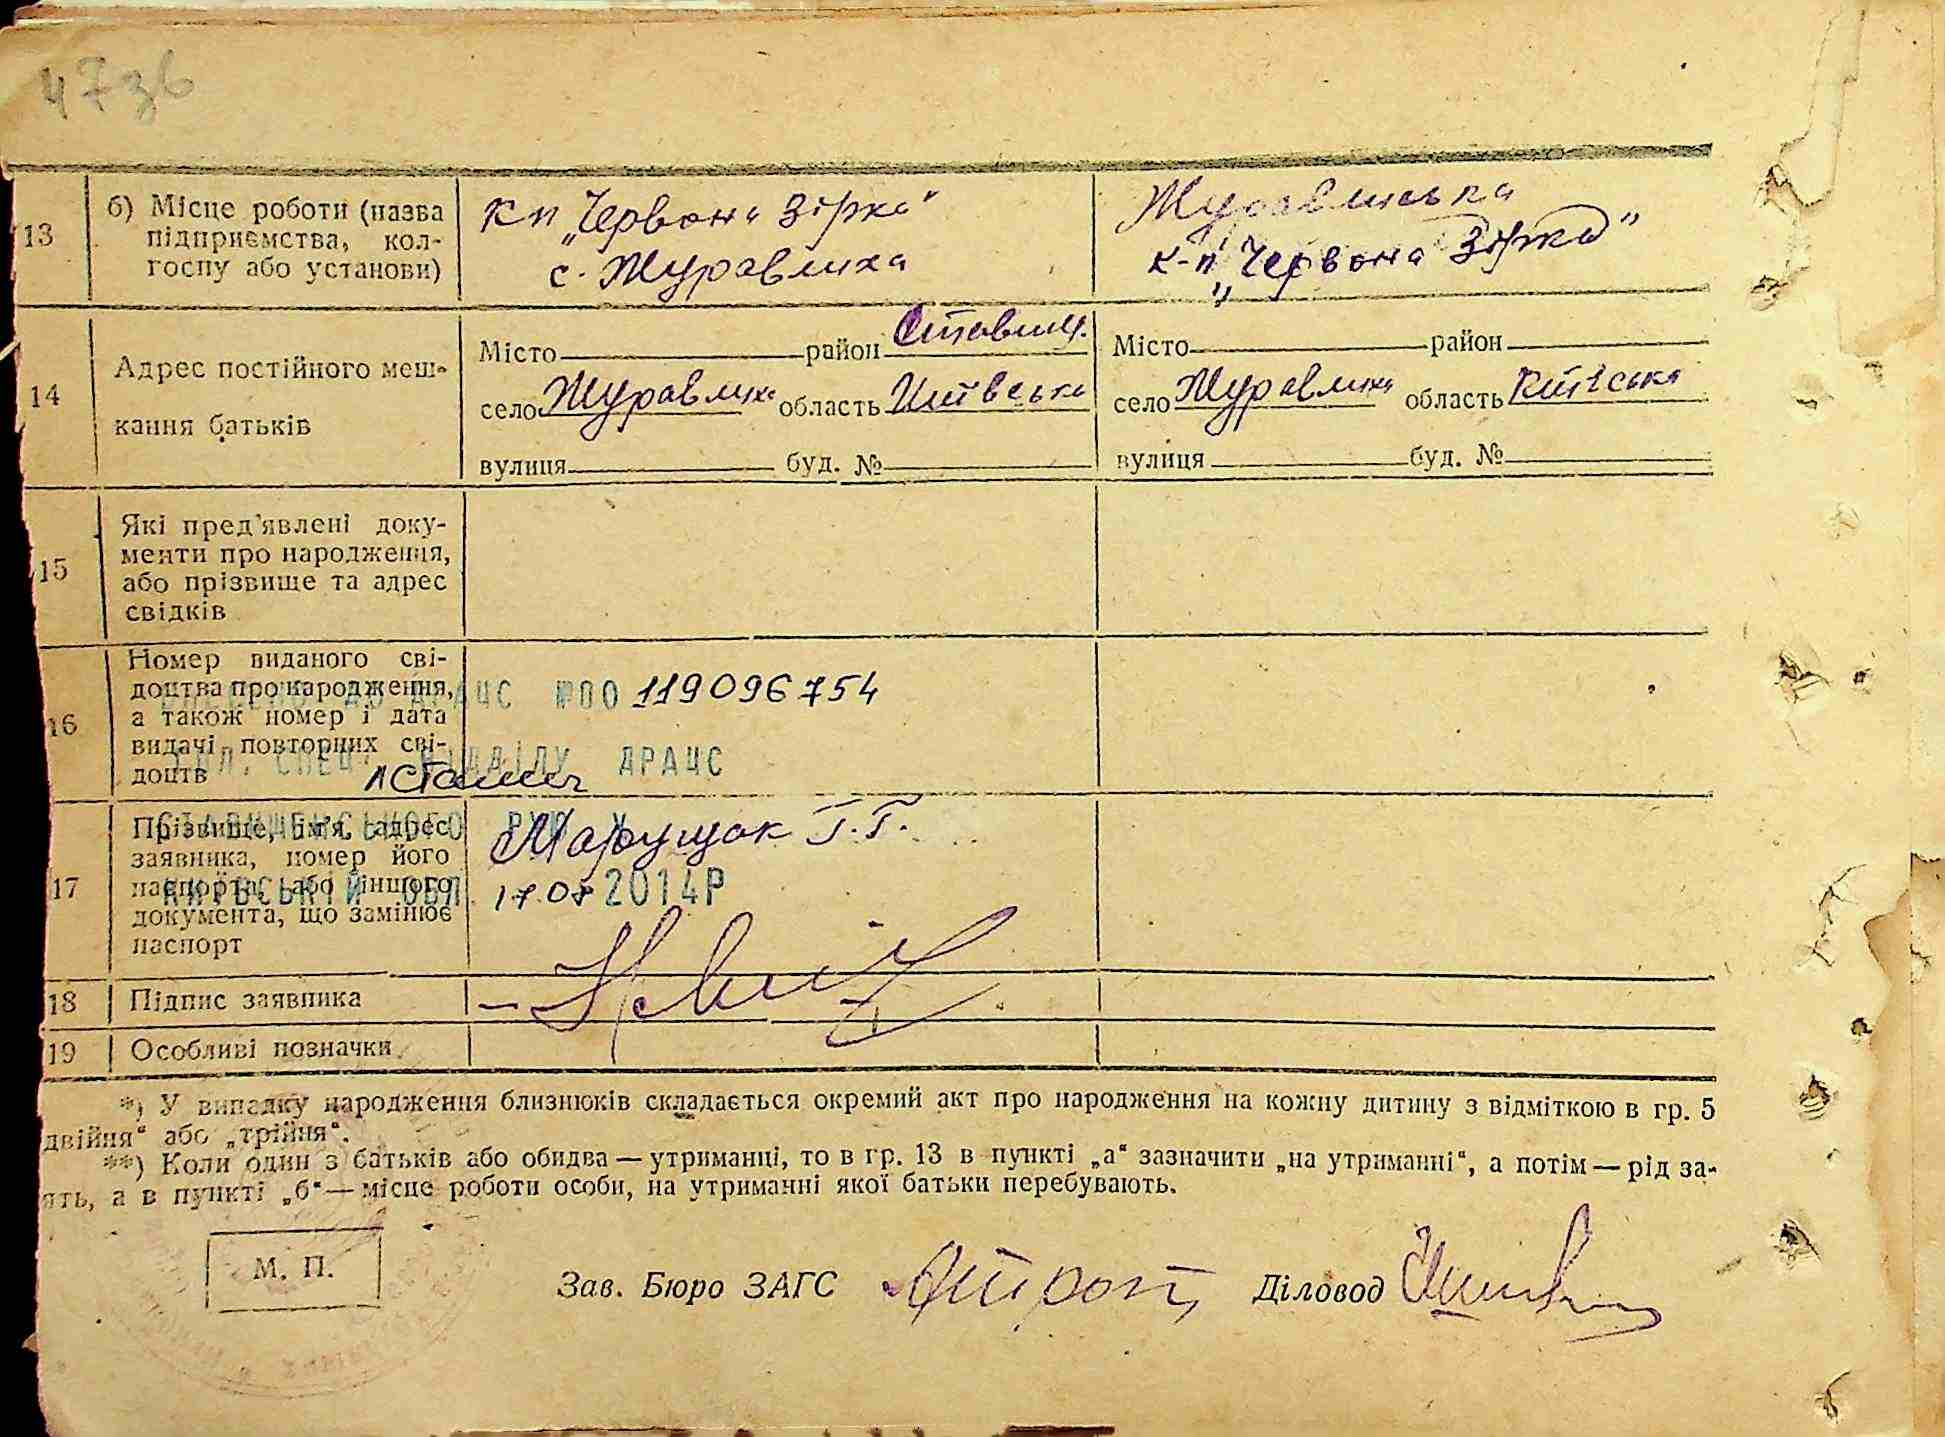 473б
13
б) Місце роботи (назва
підприємства, кол-
госпу або установи)
К-п „Червона Зірка"
с. Журавлиха
Журавлиська
к-п „Червона Зірка"
14
Адрес постійного меш-
кання батьків
Місто район Ставищ.
село Журавлиха область Київська
вулиця буд. №
Місто район
село Журавлиха область Київська
вулиця буд. №
15
Які пред'явлені доку-
менти про народження,
або прізвище та адрес
свідків
16
Номер виданого сві-
доцтва про народження,
а також номер і дата
видачі повторних сві-
доцтв
ДРАЦС №00 119096754
ВІДДІЛУ ДРАЦС
17
Прізвище, ім'я, адрес
заявника, номер його
паспорта, або іншого
документа, що замінює
паспорт
СТАВИЩЕНСЬКОГО РУЮ У
КИЇВСЬКІЙ ОБЛ. 17.07 2014Р
Марущак Г.Г.
18
Підпис заявника
19
Особливі позначки
*) У випадку народження близнюків складається окремий акт про народження на кожну дитину з відміткою в гр. 5
двійня" або „трійня".
**) Коли один з батьків або обидва — утриманці, то в гр. 13 в пункті „а" зазначити „на утриманні", а потім — рід за-
ять, а в пункті „б" — місце роботи особи, на утриманні якої батьки перебувають.
М. П.
Зав. Бюро ЗАГС
Діловод